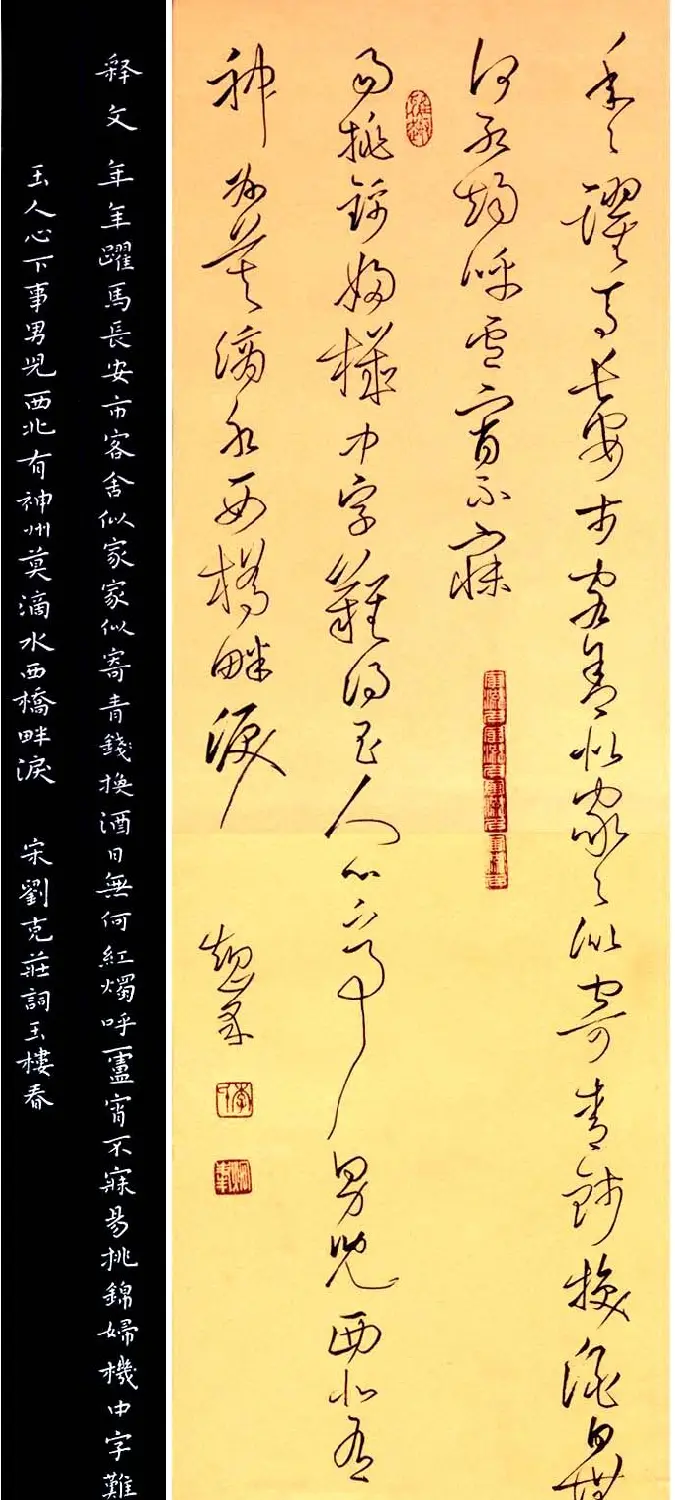 年々躍馬長安市客舍似家々似寄青錢換酒日無
何紅燭呼盧宵不寐
易挑錦婦機中字難得玉人心下事男兒西北有
神州莫滴水西橋畔淚
释文 年年躍馬長安市客舍似家家似寄青錢換酒日無何紅燭呼盧宵不寐易挑錦婦機中字難
玉人心下事男兒西北有神州莫滴水西橋畔淚 宋劉克莊詞玉樓春